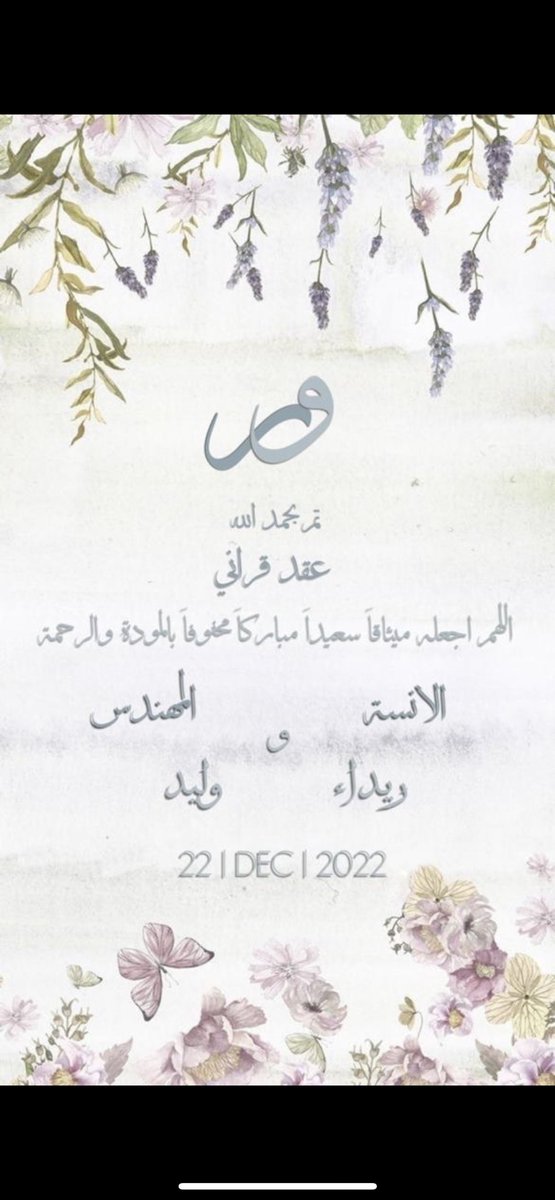 ور
تم بحمد الله
عقد قراني
اللهم اجعله ميثاقاً سعيداً مباركاً محفوفاً بالمودة والرحمة
الانسة
المهندس
و
ريداء
وليد
22 | DEC | 2022